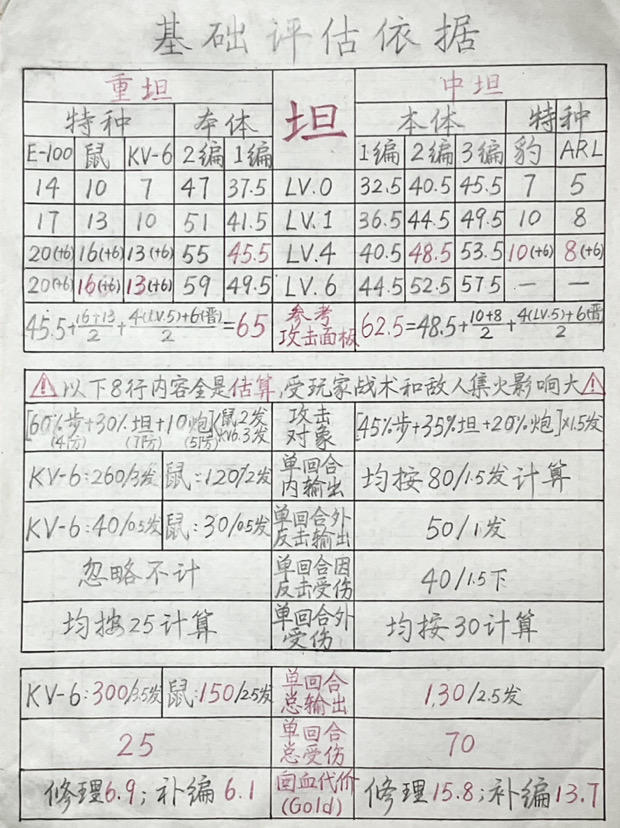 基础评估依据
重坦 坦 中坦
特种 本体 本体 特种
E-100 鼠 KV-6 2编 1编 1编 2编 3编 豹 ARL
14 10 7 47 37.5 LV.0 32.5 40.5 45.5 7 5
17 13 10 51 41.5 LV.1 36.5 44.5 49.5 10 8
20(+6) 16(+6) 13(+6) 55 45.5 LV.4 40.5 48.5 53.5 10(+6) 8(+6)
20(+6) 16(+6) 13(+6) 59 49.5 LV.6 44.5 52.5 57.5 — —
45.5+(16+13)/2+(4(LV.5)+6(晋))/2=65 参考攻击面板 62.5=48.5+(10+8)/2+(4(LV.5)+6(晋))/2
⚠以下8行内容全是估算,受玩家战术和敌人集火影响大⚠
[60%步(4防)+30%坦(7防)+10炮(5防)]×鼠.2发 KV6.3发 攻击对象 [45%步+35%坦+20%炮]×1.5发
KV-6:260/3发 鼠:120/2发 单回合内输出 均按80/1.5发计算
KV-6:40/0.5发 鼠:30/0.5发 单回合外反击输出 50/1发
忽略不计 单回合因反击受伤 40/1.5下
均按25计算 单回合外受伤 均按30计算
KV-6:300/3.5发 鼠:150/2.5发 单回合总输出 130/2.5发
25 单回合总受伤 70
修理6.9;补编6.1 回血代价(Gold) 修理15.8;补编13.7